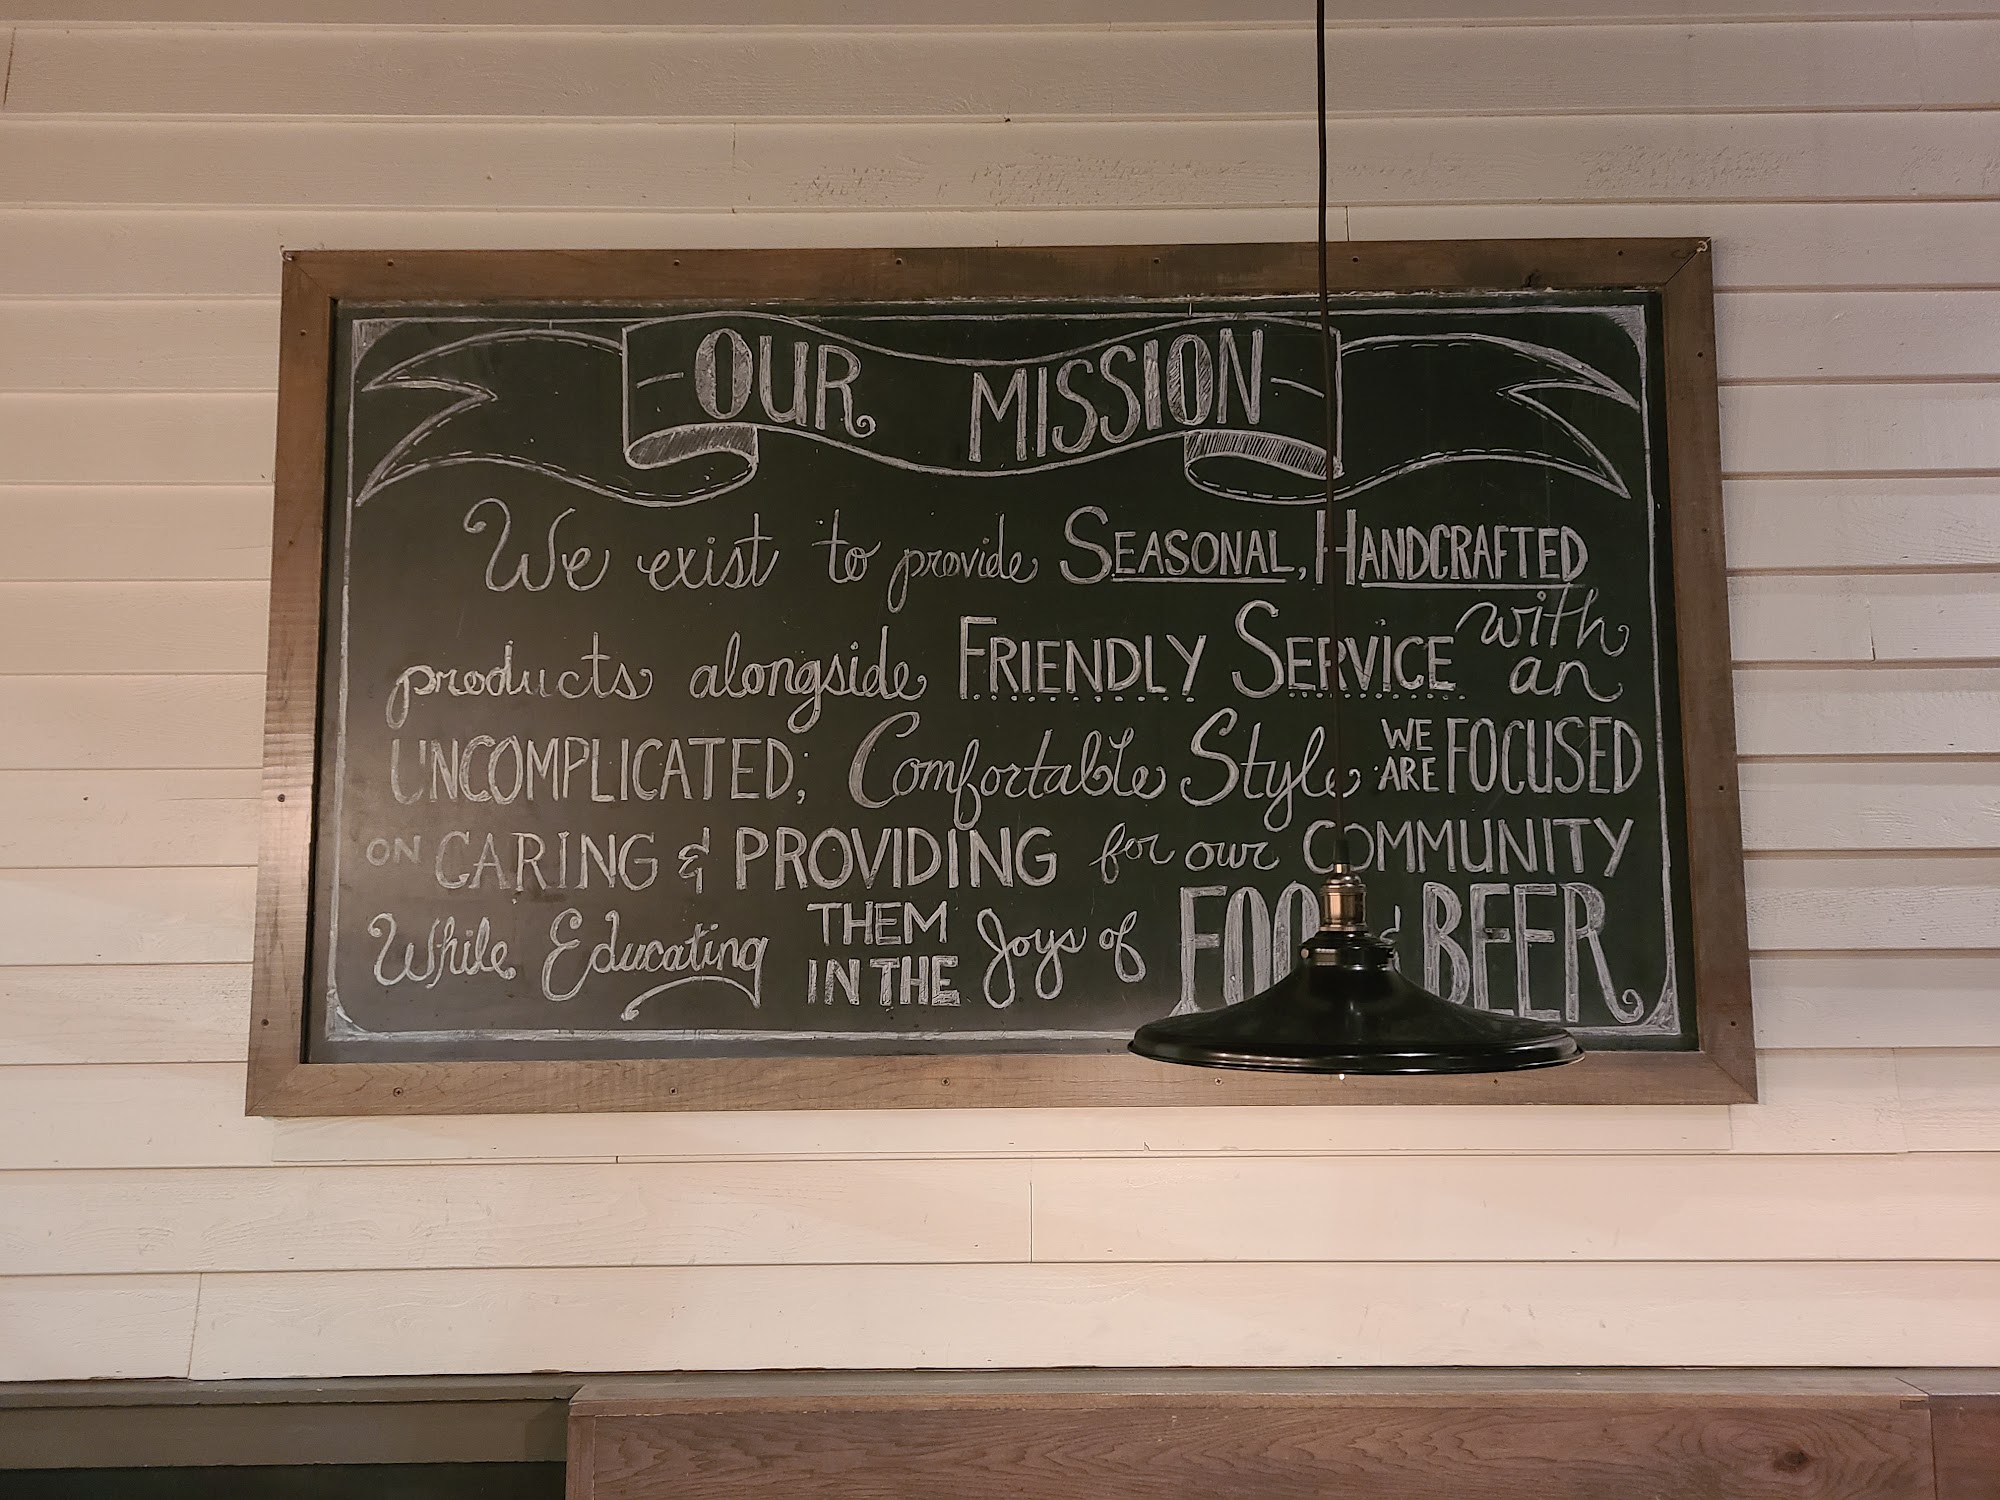 OUR MISSION
We exist to provide SEASONAL, HANDCRAFTED
products alongside FRIENDLY SERVICE with an
UNCOMPLICATED, Comfortable Style. WE ARE FOCUSED
ON CARING & PROVIDING for our COMMUNITY
While Educating THEM IN THE Joys of FOOD & BEER